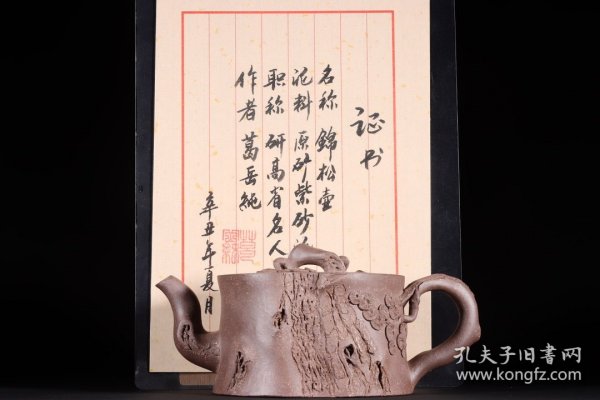 证书
名称 錦松壶
泥料 原矿紫砂
职称 研高省名人
作者 葛岳纯
辛丑年夏月
孔夫子旧书网
www.kongfz.com